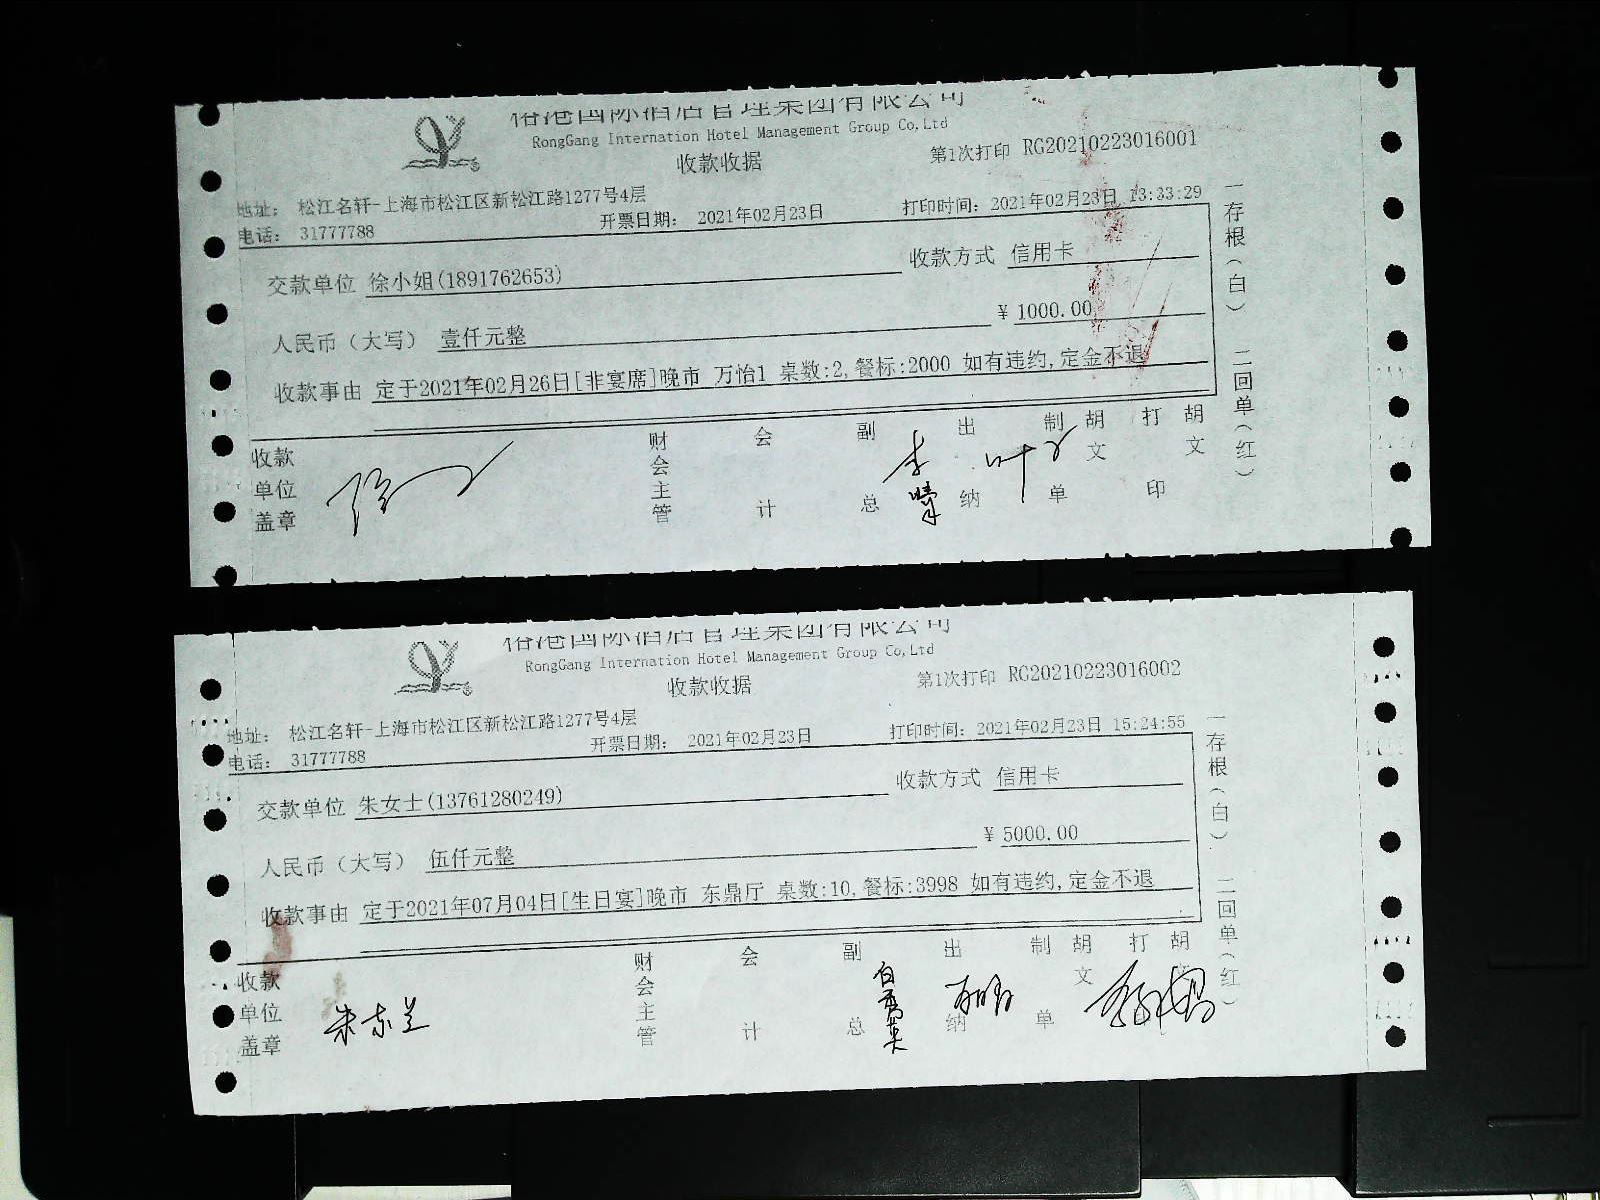 裕港国际酒店管理集团有限公司
RongGang Internation Hotel Management Group Co,Ltd
收款收据
第1次打印 RG20210223016001
地址： 松江名轩-上海市松江区新松江路1277号4层
电话： 31777788
开票日期： 2021年02月23日
打印时间：2021年02月23日 13:33:29
交款单位 徐小姐(1891762653)
收款方式 信用卡
人民币（大写） 壹仟元整
¥ 1000.00
收款事由 定于2021年02月26日[非宴席]晚市 万怡1 桌数:2,餐标:2000 如有违约,定金不退
收款单位盖章
财会主管
会计
副总
出纳
制单 胡文
打印 胡文
一存根（白） 二回单（红）
裕港国际酒店管理集团有限公司
RongGang Internation Hotel Management Group Co,Ltd
收款收据
第1次打印 RG20210223016002
地址： 松江名轩-上海市松江区新松江路1277号4层
电话： 31777788
开票日期： 2021年02月23日
打印时间：2021年02月23日 15:24:55
交款单位 朱女士(13761280249)
收款方式 信用卡
人民币（大写） 伍仟元整
¥ 5000.00
收款事由 定于2021年07月04日[生日宴]晚市 东鼎厅 桌数:10,餐标:3998 如有违约,定金不退
收款单位盖章 朱东兰
财会主管
会计
副总
出纳
制单 胡文
打印 胡
一存根（白） 二回单（红）